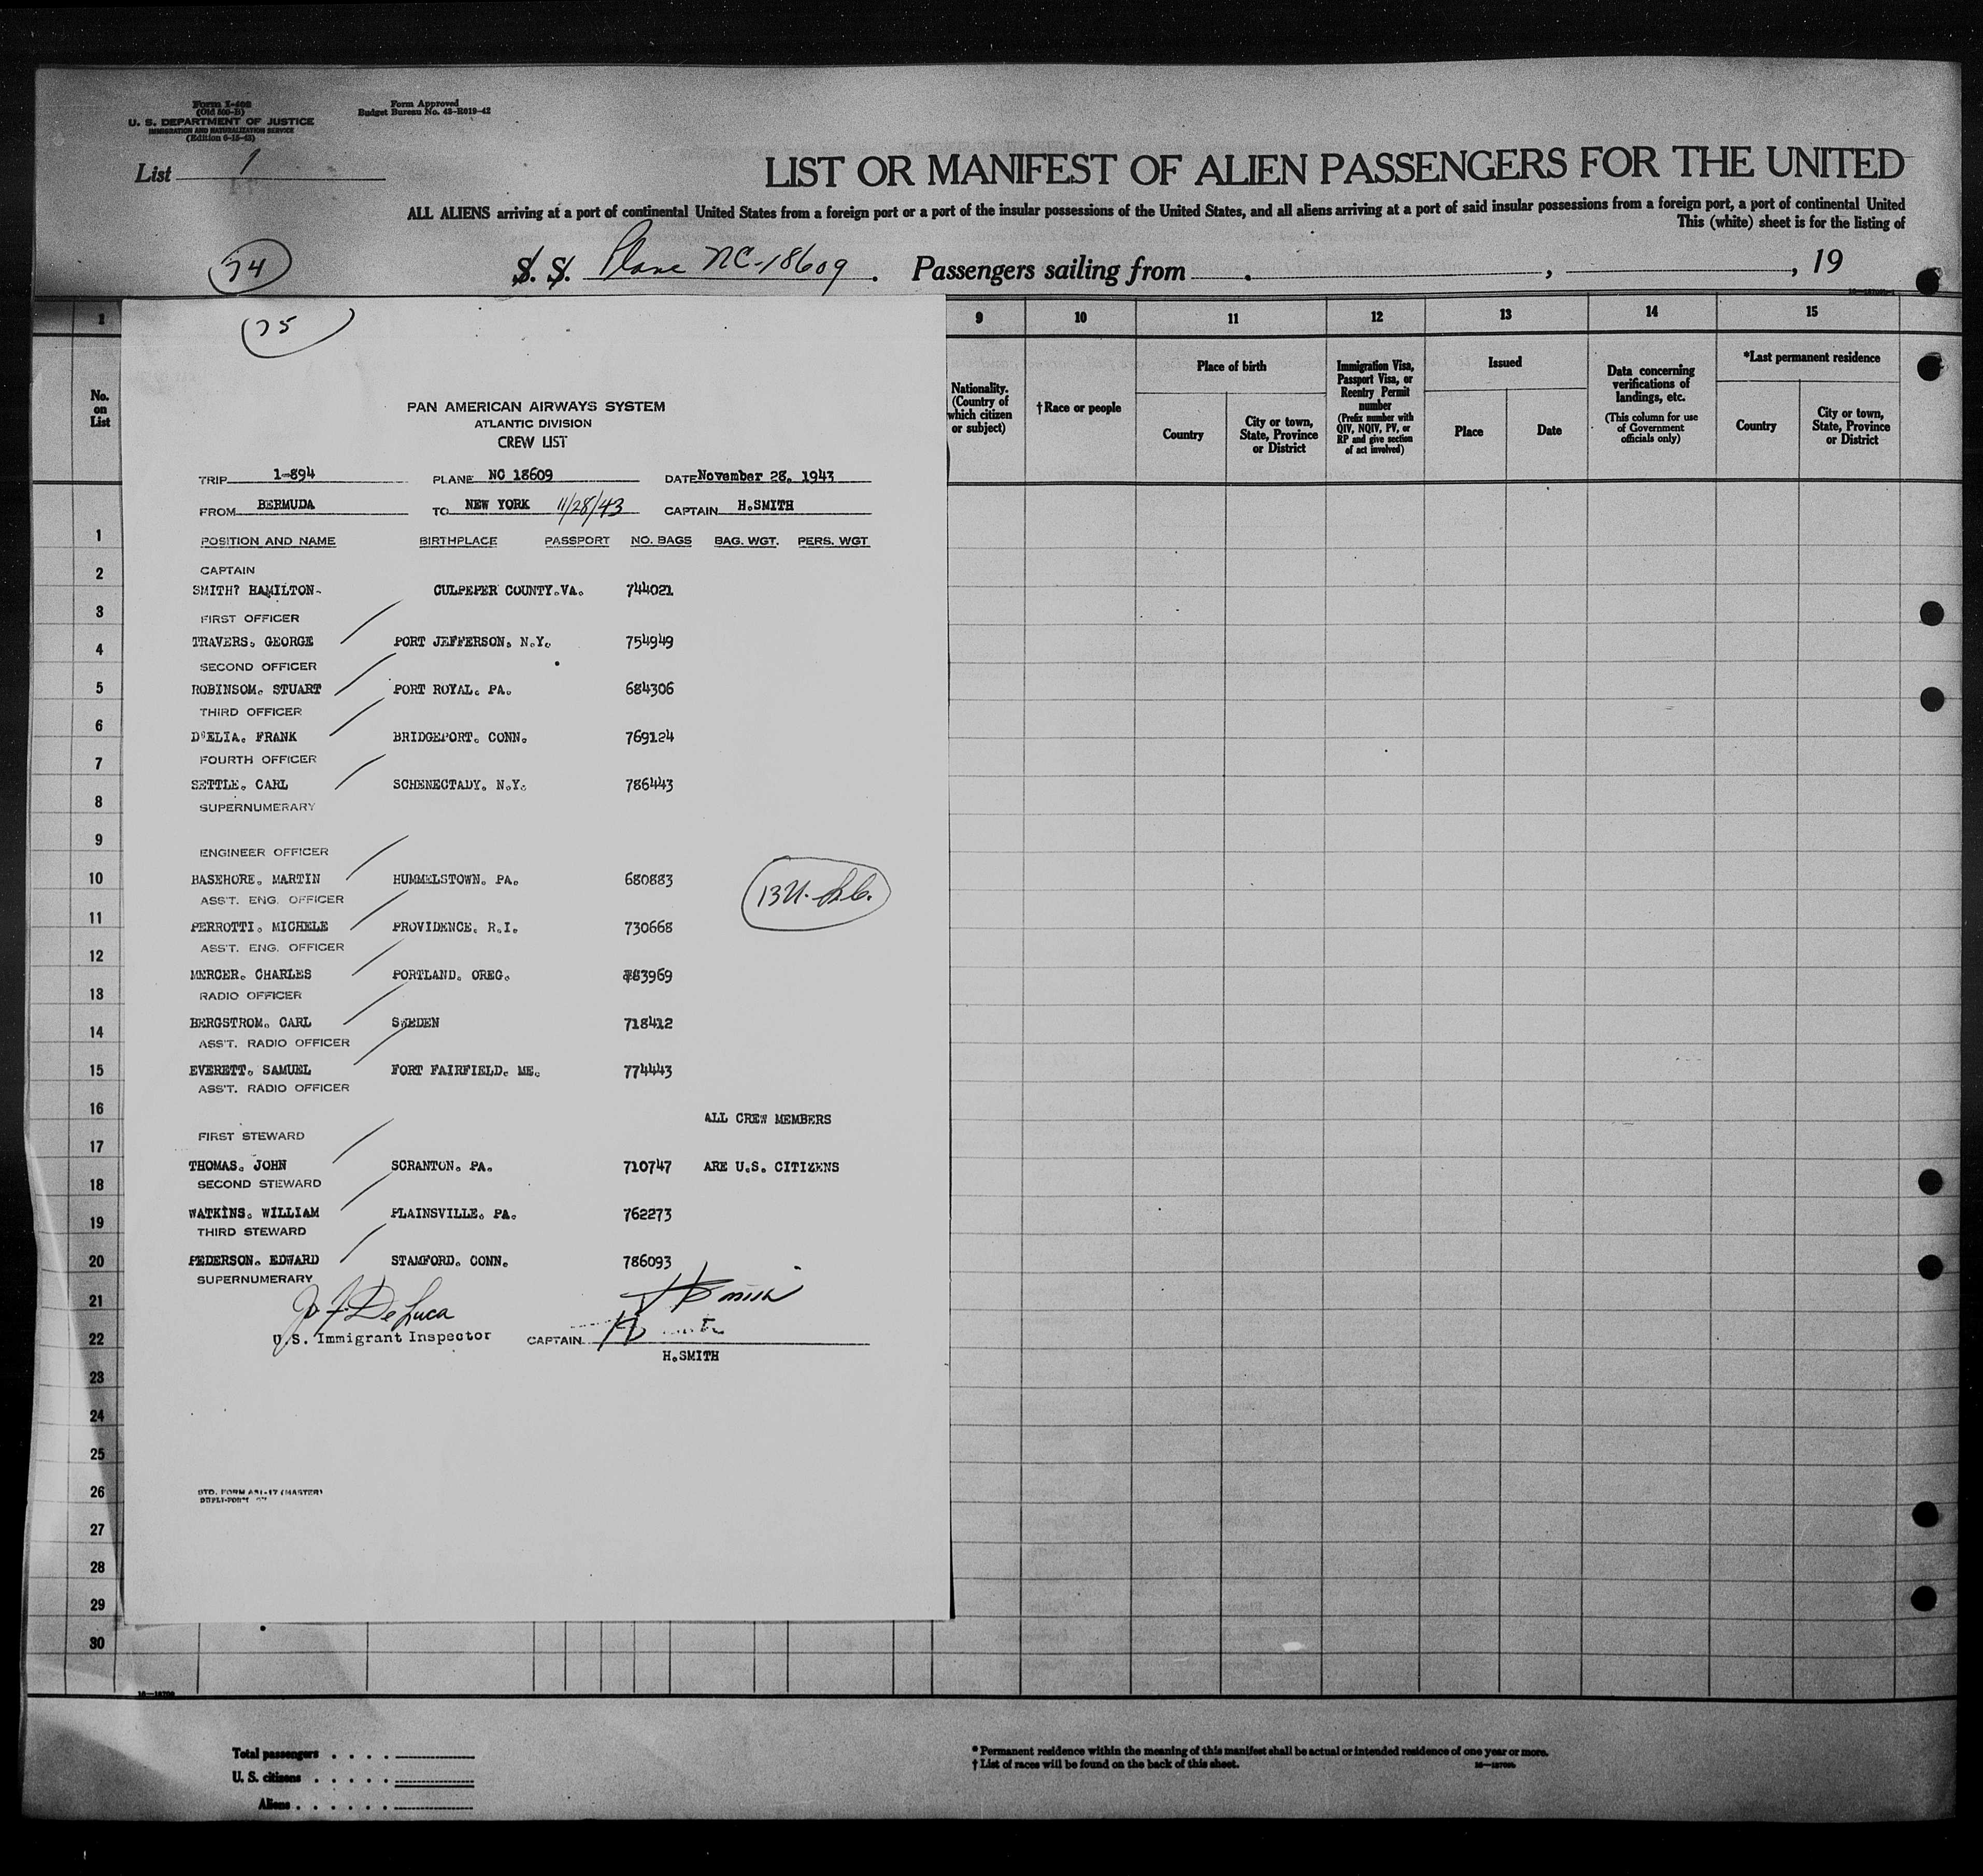 Form I-408
(Old 500-B)
U. S. DEPARTMENT OF JUSTICE
IMMIGRATION AND NATURALIZATION SERVICE
(Edition 6-15-43)
Form Approved
Budget Bureau No. 43-R019-42
List 1
LIST OR MANIFEST OF ALIEN PASSENGERS FOR THE UNITED
ALL ALIENS arriving at a port of continental United States from a foreign port or a port of the insular possessions of the United States, and all aliens arriving at a port of said insular possessions from a foreign port, a port of continental United
This (white) sheet is for the listing of
74
S. S. Plane NC-18609. Passengers sailing from , , 19
1 9 10 11 12 13 14 15
No. on List
Nationality. (Country of which citizen or subject)
† Race or people
Place of birth
Country
City or town, State, Province or District
Immigration Visa, Passport Visa, or Reentry Permit number
(Prefix number with QIV, NQIV, PV, or RP and give section of act involved)
Issued
Place
Date
Data concerning verifications of landings, etc.
(This column for use of Government officials only)
*Last permanent residence
Country
City or town, State, Province or District
75
PAN AMERICAN AIRWAYS SYSTEM
ATLANTIC DIVISION
CREW LIST
TRIP 1-894 PLANE NC 18609 DATE November 28, 1943
FROM BERMUDA TO NEW YORK 11/28/43 CAPTAIN H.SMITH
POSITION AND NAME BIRTHPLACE PASSPORT NO. BAGS BAG. WGT. PERS. WGT
CAPTAIN
SMITH? HAMILTON- CULPEPER COUNTY.VA. 744021
FIRST OFFICER
TRAVERS. GEORGE PORT JEFFERSON. N.Y. 754949
SECOND OFFICER
ROBINSOM. STUART PORT ROYAL. PA. 684306
THIRD OFFICER
D'ELIA. FRANK BRIDGEPORT. CONN. 769124
FOURTH OFFICER
SETTLE. CARL SCHENECTADY. N.Y. 786443
SUPERNUMERARY
ENGINEER OFFICER
BASEHORE. MARTIN HUMMELSTOWN. PA. 680883
13 U.
ASS'T. ENG. OFFICER
PERROTTI. MICHELE PROVIDENCE. R.I. 730668
ASS'T. ENG. OFFICER
MERCER. CHARLES PORTLAND. OREG. 783969
RADIO OFFICER
BERGSTROM. CARL SWEDEN 718412
ASS'T. RADIO OFFICER
EVERETT. SAMUEL FORT FAIRFIELD. ME. 774443
ASS'T. RADIO OFFICER
ALL CREW MEMBERS
FIRST STEWARD
THOMAS. JOHN SCRANTON. PA. 710747 ARE U.S. CITIZENS
SECOND STEWARD
WATKINS. WILLIAM PLAINSVILLE. PA. 762273
THIRD STEWARD
PEDERSON. EDWARD STAMFORD. CONN. 786093
SUPERNUMERARY
De Luca H Smith
U.S. Immigrant Inspector CAPTAIN
H.SMITH
STD. FORM ASI-17 (MASTER)
1
2
3
4
5
6
7
8
9
10
11
12
13
14
15
16
17
18
19
20
21
22
23
24
25
26
27
28
29
30
Total passengers . . . .
U. S. citizens . . . . .
Aliens . . . . . .
* Permanent residence within the meaning of this manifest shall be actual or intended residence of one year or more.
† List of races will be found on the back of this sheet.